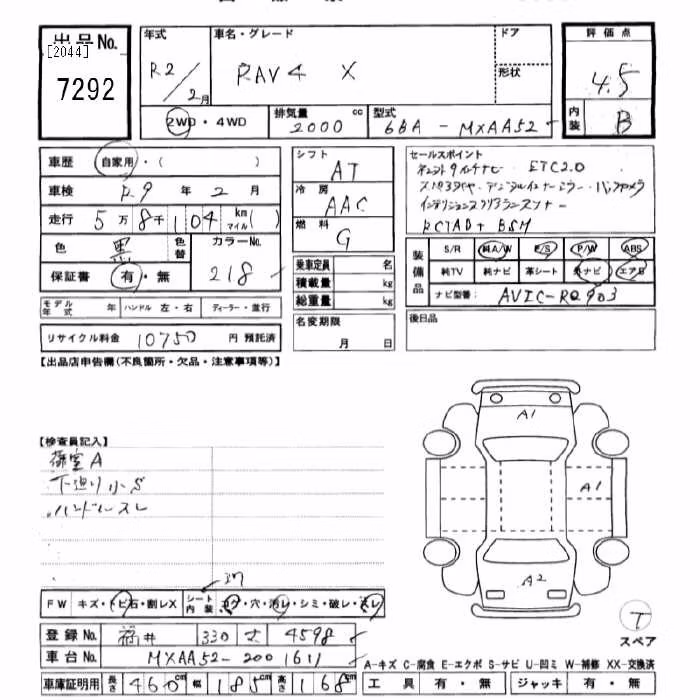 出品No.
[2044]
7292
年式
R2/2月
車名・グレード
RAV4 X
ドア
形状
評価点
4.5
内装
B
2WD・4WD
排気量 2000 cc
型式 6BA-MXAA52
車歴 自家用・( )
車検 R.9年 2月
走行 5万8千104 km マイル( )
色 黒 色替
カラーNo. 218
保証書 有・無
シフト AT
冷房 AAC
燃料 G
乗車定員 名
積載量 kg
総重量 kg
セールスポイント
ETC2.0
RCTAD+BSM
装備品
S/R 純A/W P/S P/W ABS
純TV 純ナビ 革シート 外ナビ エアB
ナビ型番: AVIC-RQ903
モデル年式 年 ハンドル 左・右 ディーラー・並行
リサイクル料金 10750 円 預託済
名変期限
月 日
後日品
【出品店申告欄(不良箇所・欠品・注意事項等)】
【検査員記入】
A
下廻り小S
ハンドルスレ
A1
A1
A2
T
スペア
FW キズ・トビ石・割レX
シート内装 コゲ・穴・汚レ・シミ・破レ・スレ
登録No. 福井 330 4598
車台No. MXAA52-2001611
車庫証明用 長さ 460cm 幅 185cm 高さ 168cm
A-キズ C-腐食 E-エクボ S-サビ U-凹ミ W-補修 XX-交換済
工具 有・無 ジャッキ 有・無